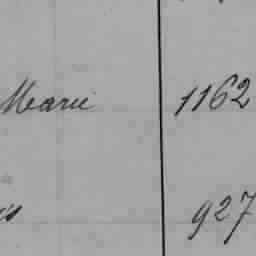 Marie 1162
927